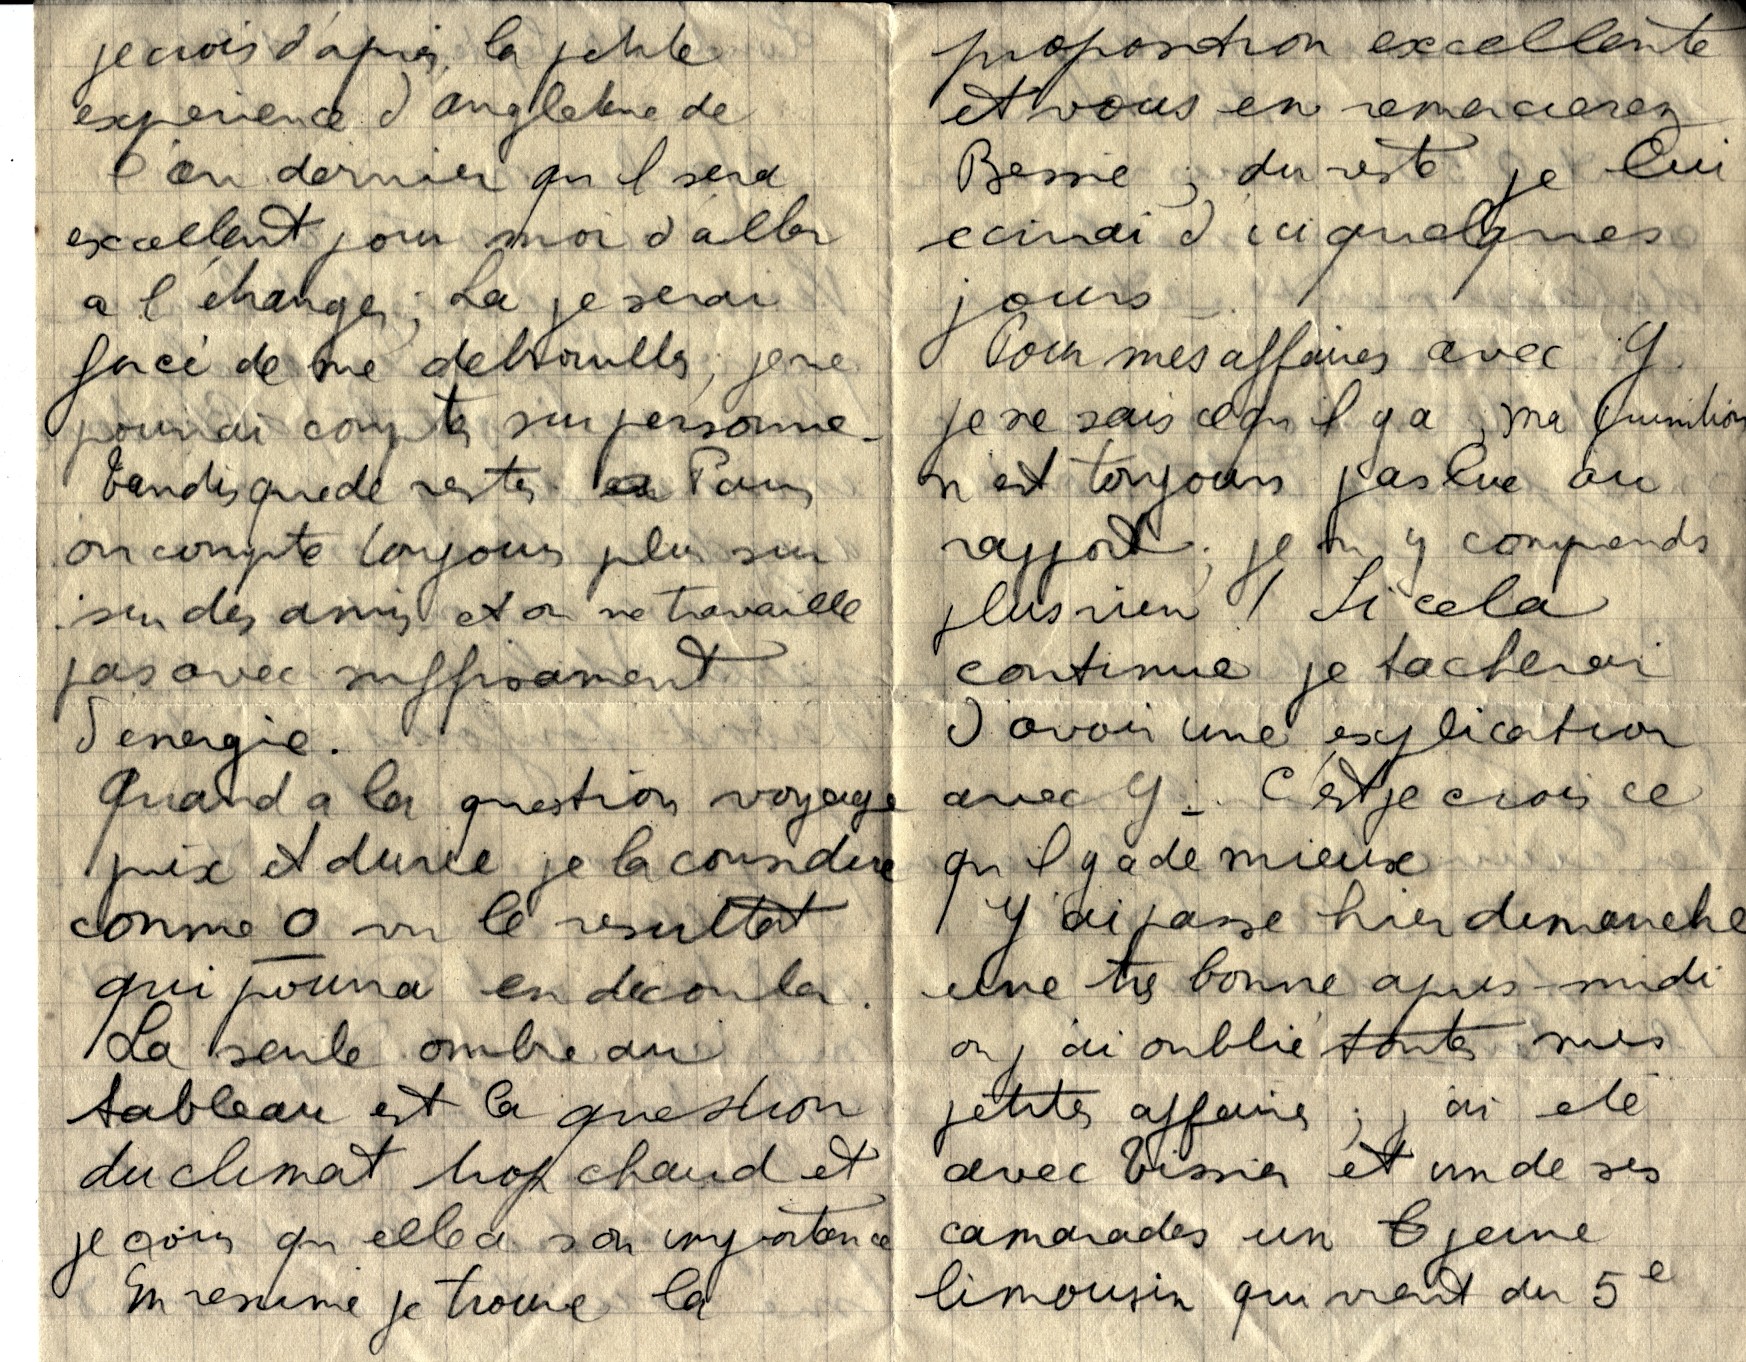 je crois d'après la petite
experience d'angleterre de
l'an dernier qu'il sera
excellent pour moi d'aller
a l'étranger; La je serai
forcé de me debrouiller, je ne
pourrai compter sur personne -
tandis que de rester a Paris
on compte toujours plus sur
sur des amis et on ne travaille
pas avec suffisament
d'energie.
Quand a la question voyage
prix et durée je la considere
comme 0 vu le resultat
qui pourra en decouler.
La seule ombre au
tableau est la question
du climat trop chaud et
je crois qu elle a son importance
En resumé je trouve la
proposition excellente
et vous en remercierez
Bessie; du reste je lui
ecrirai d'ici quelques
jours
Pour mes affaires avec G.
je ne sais ce qu'il y a, ma punition
n'est toujours pas lue au
rapport; je n'y comprends
plus rien! Si cela
continue je tacherai
d'avoir une explication
avec G -. C'est je crois ce
qu'il y a de mieux
J'ai passe hier dimanche
une tres bonne apres-midi
ou j'ai oublié toutes mes
petites affaires; j'ai eté
avec Tissier et un de ses
camarades un jeune
limousin qui vient du 5e